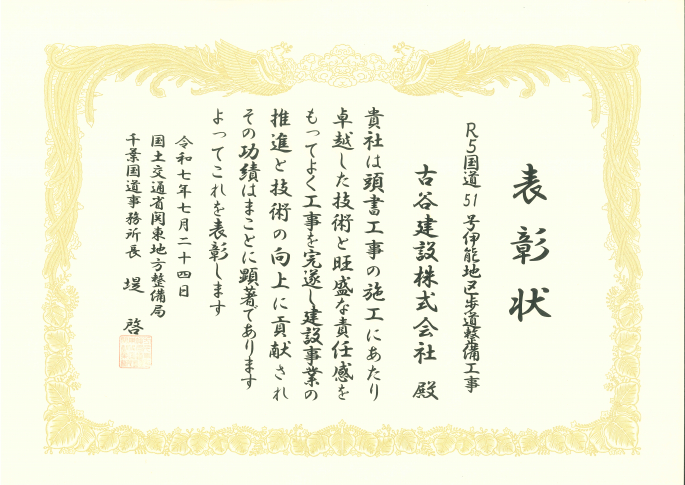 表彰状
R5国道51号伊能地区歩道整備工事
古谷建設株式会社 殿
貴社は頭書工事の施工にあたり
卓越した技術と旺盛な責任感を
もってよく工事を完遂し建設事業の
推進と技術の向上に貢献され
その功績はまことに顕著であります
よってこれを表彰します
令和七年七月二十四日
国土交通省関東地方整備局
千葉国道事務所長 堤 啓